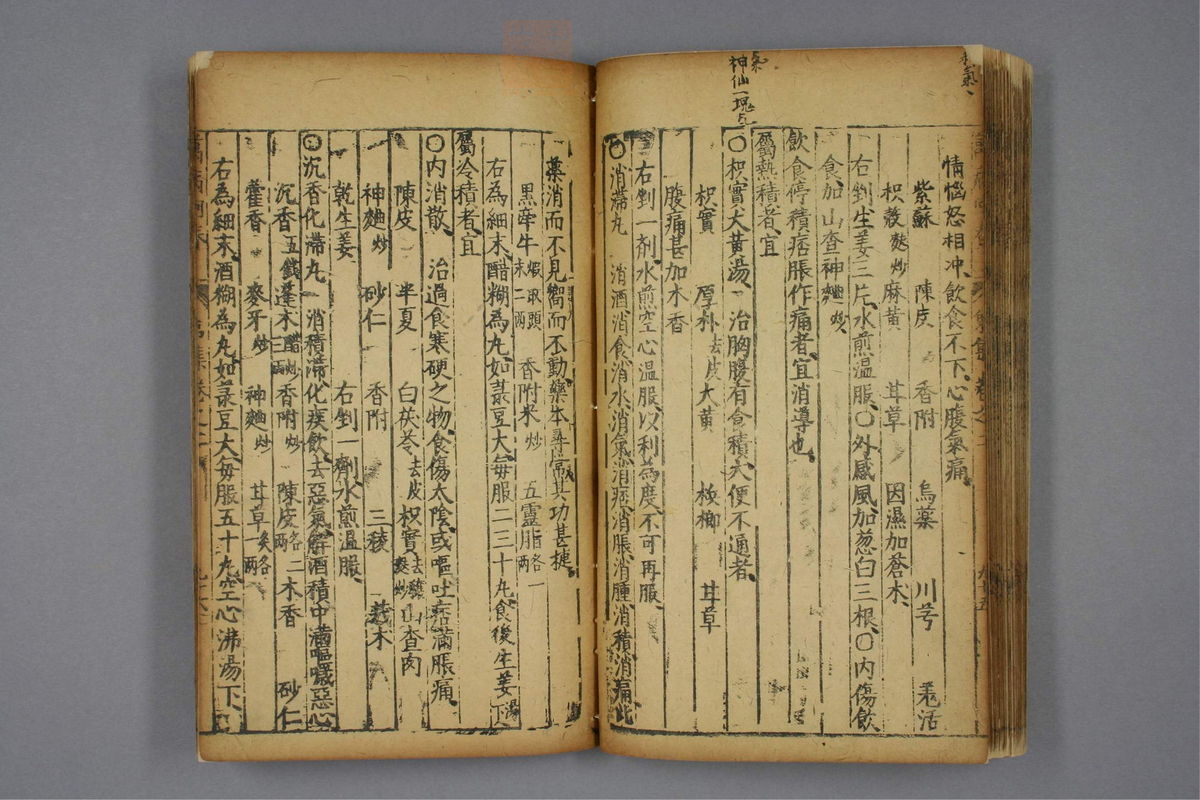 神仙一塊氣
情惱怒相冲、飲食不下、心腹氣痛、
紫蘇 陳皮 香附 烏藥 川芎 羗活
枳殻麩炒 麻黄 甘草 因濕加蒼术、
右剉生姜三片、水煎温服、〇外感風、加葱白三根、〇内傷飲
食加山查神麯炒、
飲食停積痞脹作痛者、宜消導也、
屬熱積者、宜
〇枳實大黄湯、治胸腹有食積、大便不通者、
枳實 厚朴去皮 大黄 梹榔 甘草
腹痛甚、加木香
右剉一剤、水煎空心温服、以利為度、不可再服、
〇消滯丸 消酒消食消水消氣消痞消脹消腫消積消痛、此
藥消而不見、嚮而不動、藥本尋常、其功甚捷、
黒牽牛煅取頭末二兩 香附米炒 五靈脂各一兩
右為細末、醋糊為丸、如菉豆大、每服二三十丸、食後生姜湯下、
屬冷積者、宜
〇内消散、 治過食寒硬之物、食傷太陰、或嘔吐痞滿脹痛、
陳皮 半夏 白茯苓去皮 枳實去穰麩炒 山查肉
神麯炒 砂仁 香附 三稜 莪术
乾生姜 右剉一劑、水煎温服、
〇沉香化滯丸 消積滯、化痰飲、去惡氣、解酒積、中滿嘔噦惡心
沉香五錢 蓬术醋炒三兩 香附炒 陳皮各二兩 木香 砂仁
藿香 麥牙炒 神麯炒 甘草炙各一兩
右為細末、酒糊為丸、如菉豆大、每服五十丸、空心沸湯下、